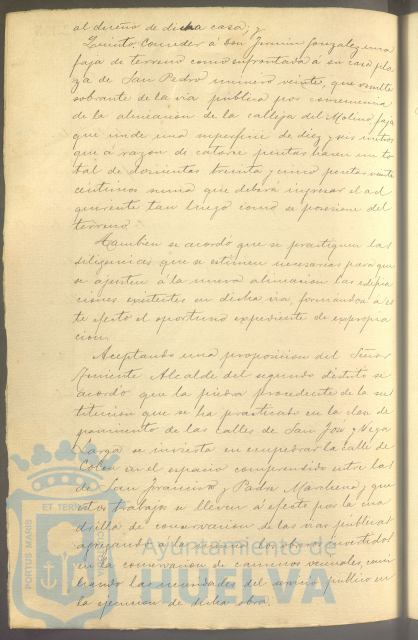 al dueño de dicha casa; y
Quinto. Conceder á Don Fermin Gonzalez una
faja de terreno como enfrontada á su casa pla
za de San Pedro número veinte, que resulta
sobrante de la via pública por consecuencia
de la alineacion de la calleja del Molino, faja
que mide una superficie de diez y seis metros
que á razon de catorce pesetas hacen un to
tal de doscientas treinta y cinco pesetas veinte
céntimos suma que deberá ingresar el ad
quirente tan luego como se posesione del
terreno.
Tambien se acordó que se practiquen las
diligencias que se estimen necesarias para que
se ajusten á la nueva alineacion las edifica
ciones existentes en dicha via, formandose á es
te efecto el oportuno expediente de expropia
cion.
Aceptando una proposicion del Señor
Teniente Alcalde del segundo distrito se
acordó que la piedra procedente de la sus
titucion que se ha practicado en la
de las calles de San José y Vega
Larga se invierta en empedrar la calle de
Colon en el espacio comprendido entre las
de San Francisco y Padre Marchena, y que
estos trabajos se lleven á efecto por la cua
drilla de conservacion de las vias públicas
agregando á la misma los obreros invertidos
en la conservacion de caminos vecinales,
las necesidades del servicio publico en
la ejecucion de dicha obra.
Ayuntamiento de
HUELVA
PORTUS MARIS
ET TERRAE